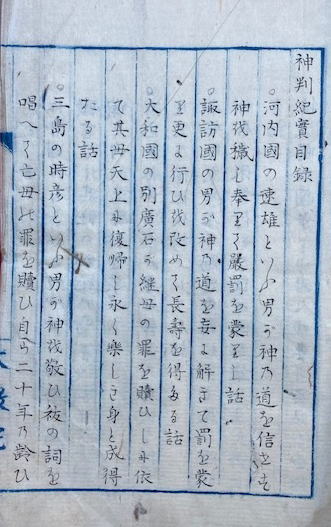 神判紀實目録
○河内國の速雄といふ男が神乃道を信せす
神を穢し奉りて嚴罰を蒙りし話
○諏訪國の男が神乃道を妄に解きて罰を蒙
り更に行ひを改めて長壽を得たる話
○大和國の別廣石が繼母の罪を贖ひしに依
て其母天上に復帰し永く樂しき身と成得
たる話
○三島の時彦といふ男が神を敬ひ祓の詞を
唱へて亡母の罪を贖ひ目ら二十年乃齡ひ